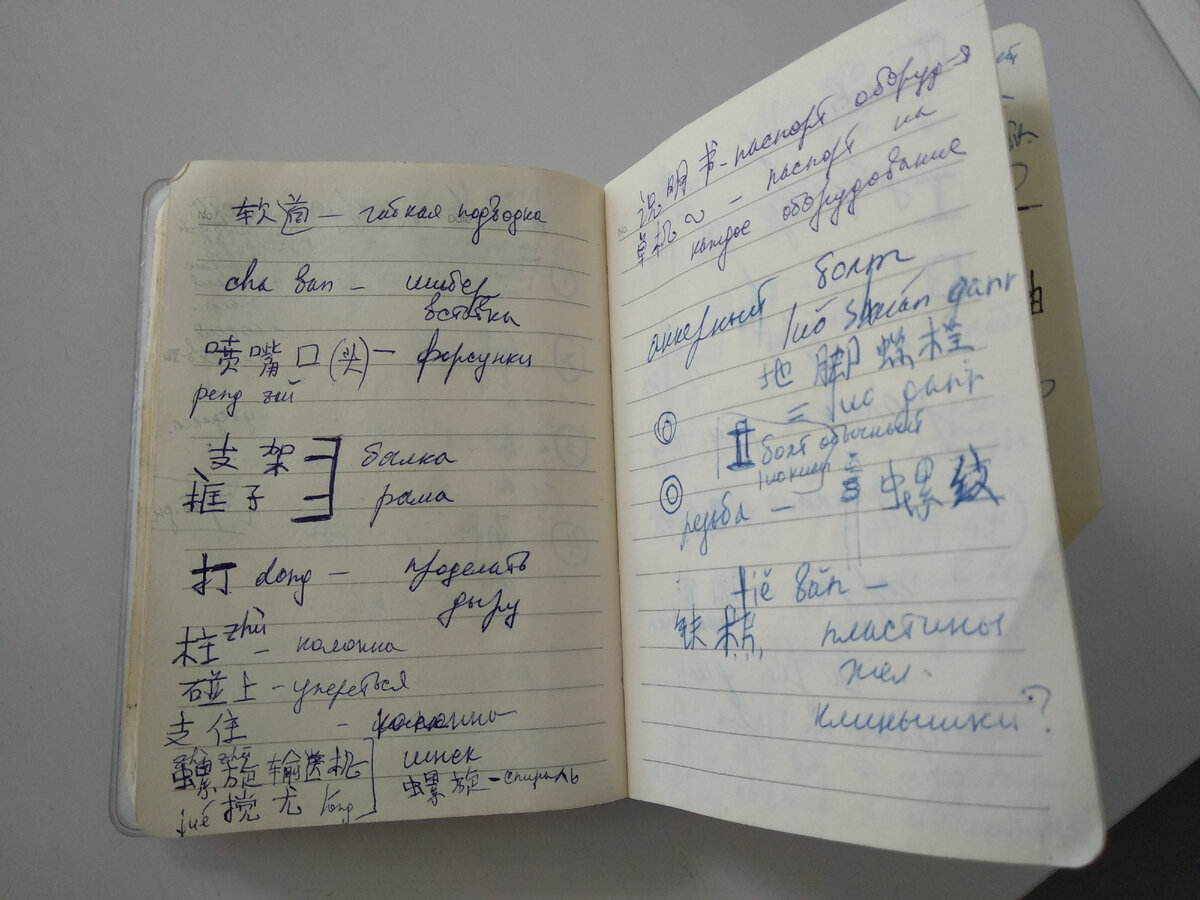 软道 — гибкая подводка
cha ban — шибер
вставки
喷嘴口(头) — форсунки
peng zui
支架 балка
框子 рама
打 dong — проделать
дыру
柱 zhù — колонна
碰上 — упереться
支住 — колонны
螺旋输送机 шнек
螺旋 — спираль
jué
说明书 — паспорт оборуд-я
单机 ~ — паспорт на
каждое оборудование
анкерный болт
luó shuān gānr
地脚螺栓
= luo ganr
болт обычный
резьба — 螺纹
tiě bǎn —
铁板 пластины
жел.
клинышки?